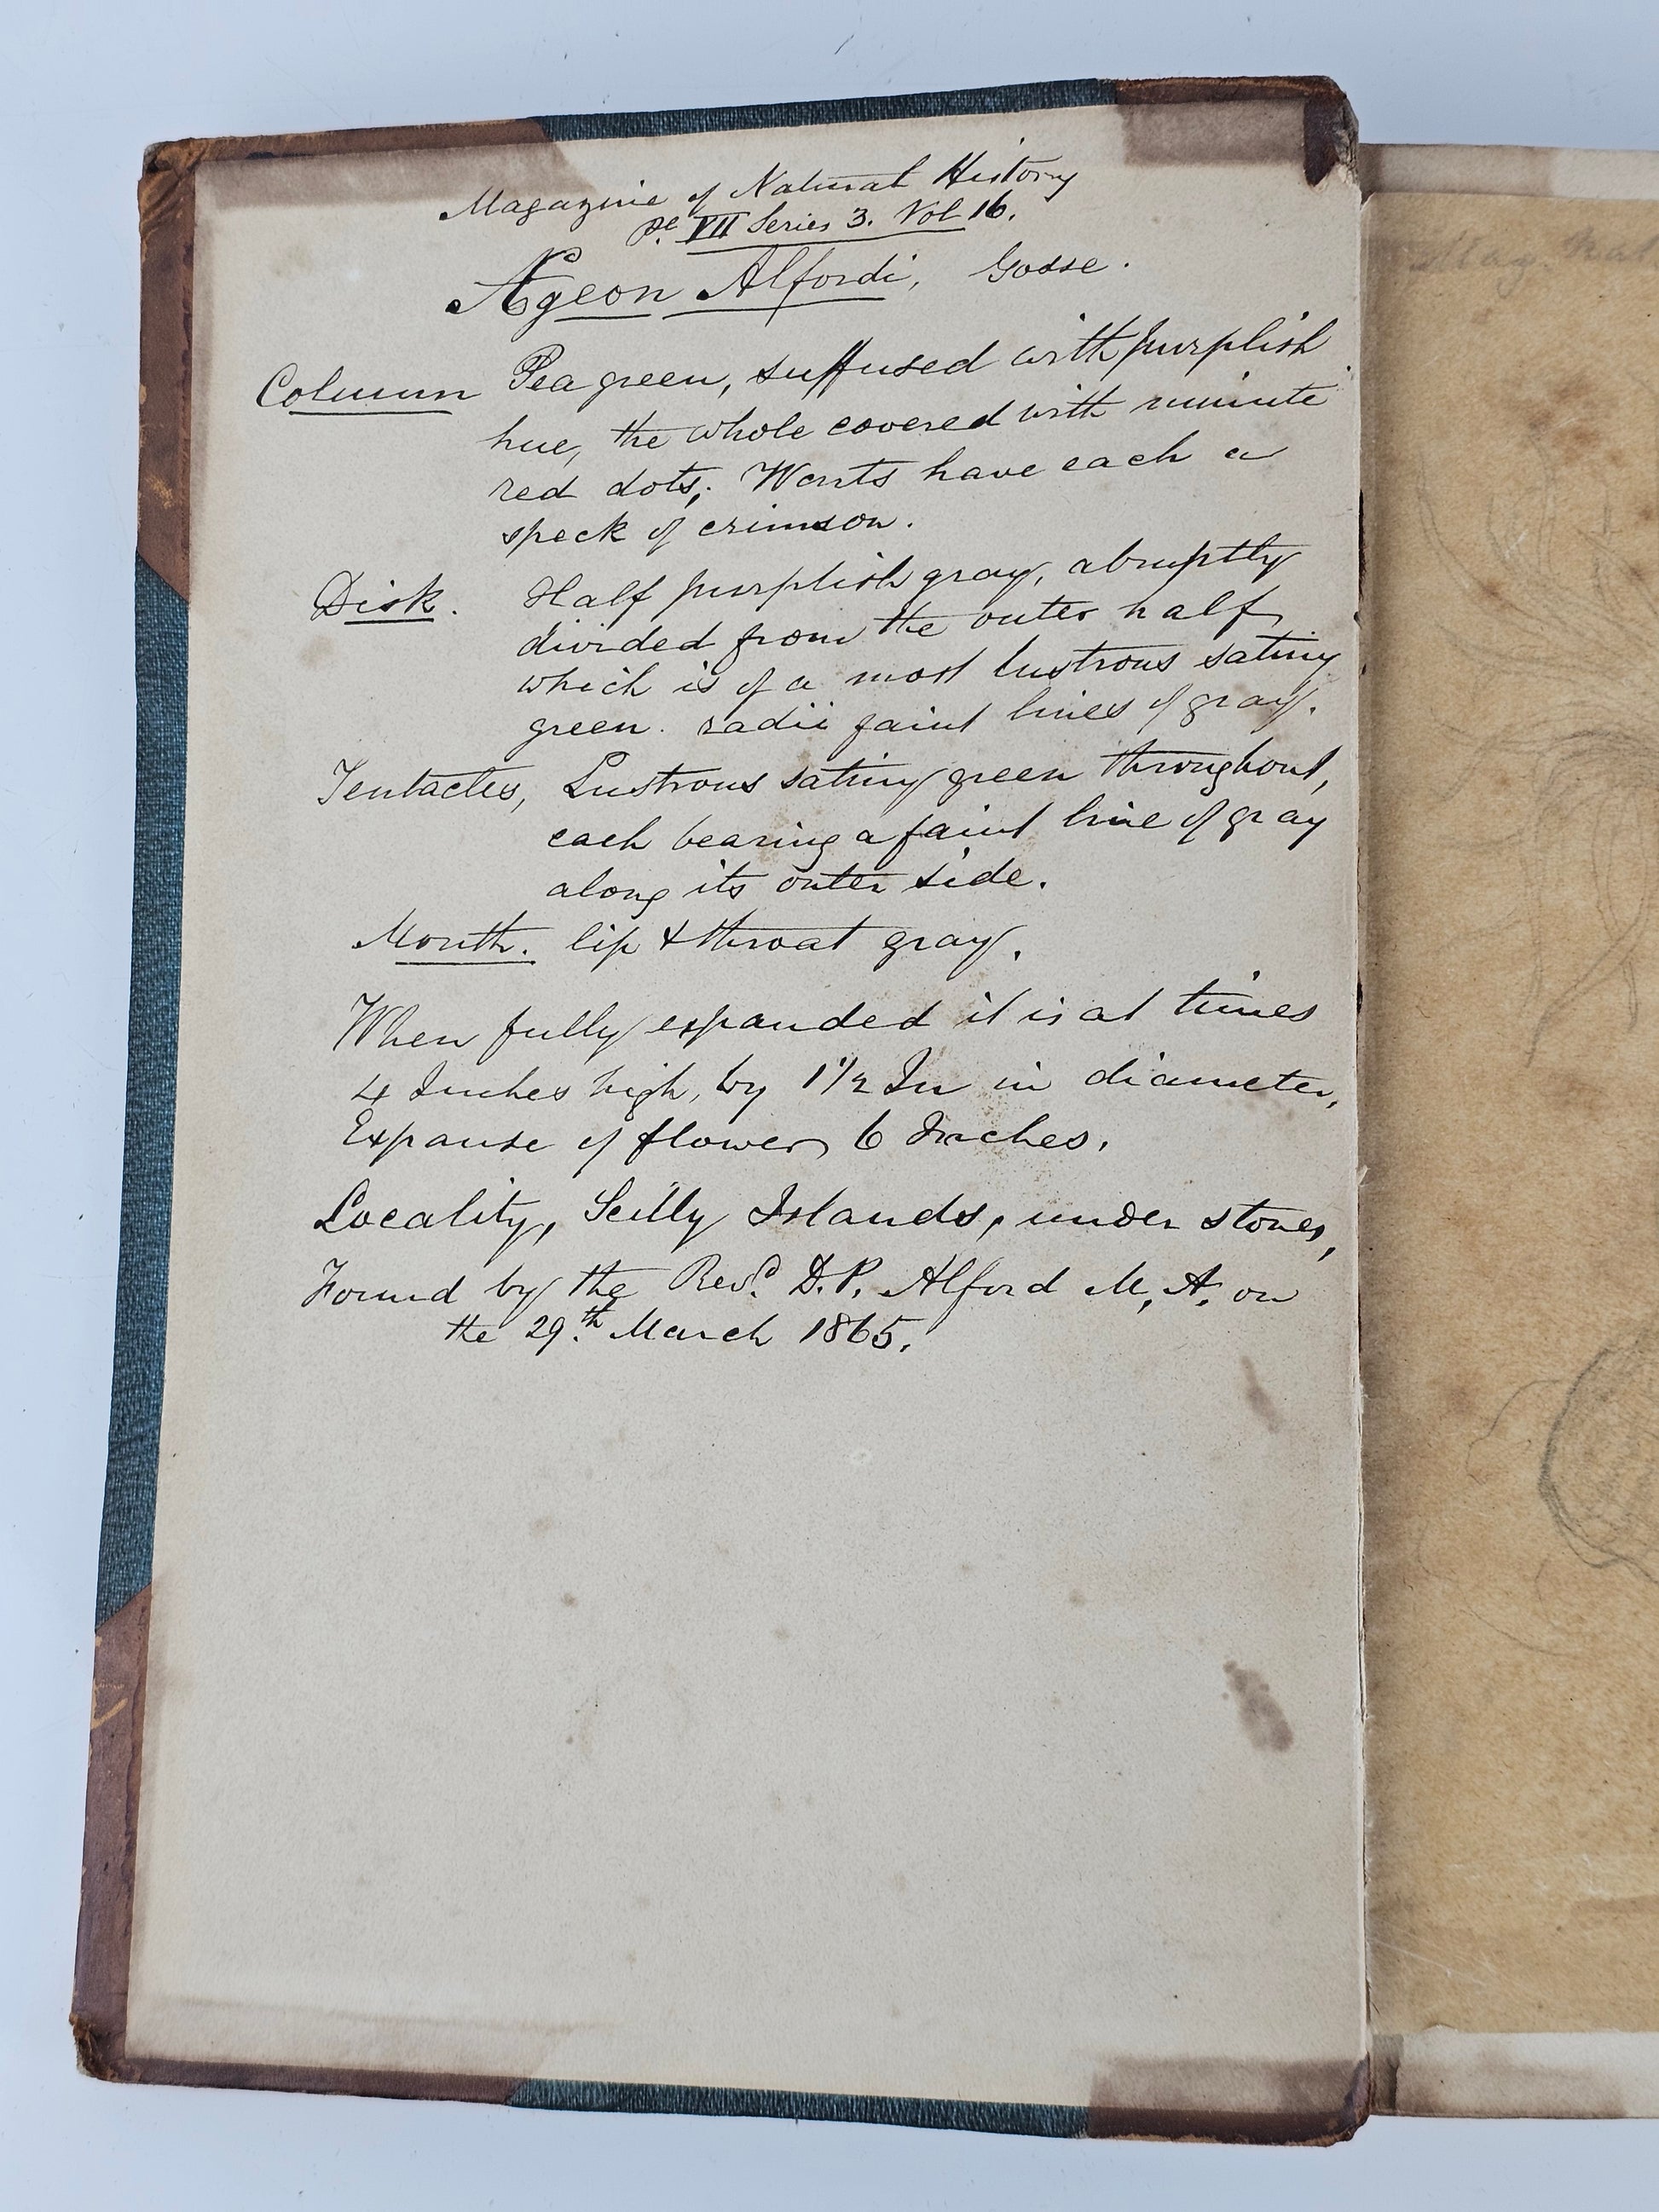 Magazine of Natural History
Pl. VII Series 3. Vol 16.
Ægeon Alfordi, Gosse.
Column Pea green, suffused with purplish
hue, the whole covered with minute
red dots; Warts have each a
speck of crimson.
Disk. Half purplish gray, abruptly
divided from the outer half,
which is of a most lustrous satiny
green. radii faint lines of gray.
Tentacles, Lustrous satiny green throughout,
each bearing a faint line of gray
along its outer side.
Mouth. lip & throat gray.
When fully expanded it is at times
4 Inches high, by 1 1/2 In in diameter,
Expanse of flower, 6 Inches.
Locality, Scilly Islands, under stones,
Found by the Revd. D.P. Alford M.A. on
the 29th. March 1865.
Mag. Nat